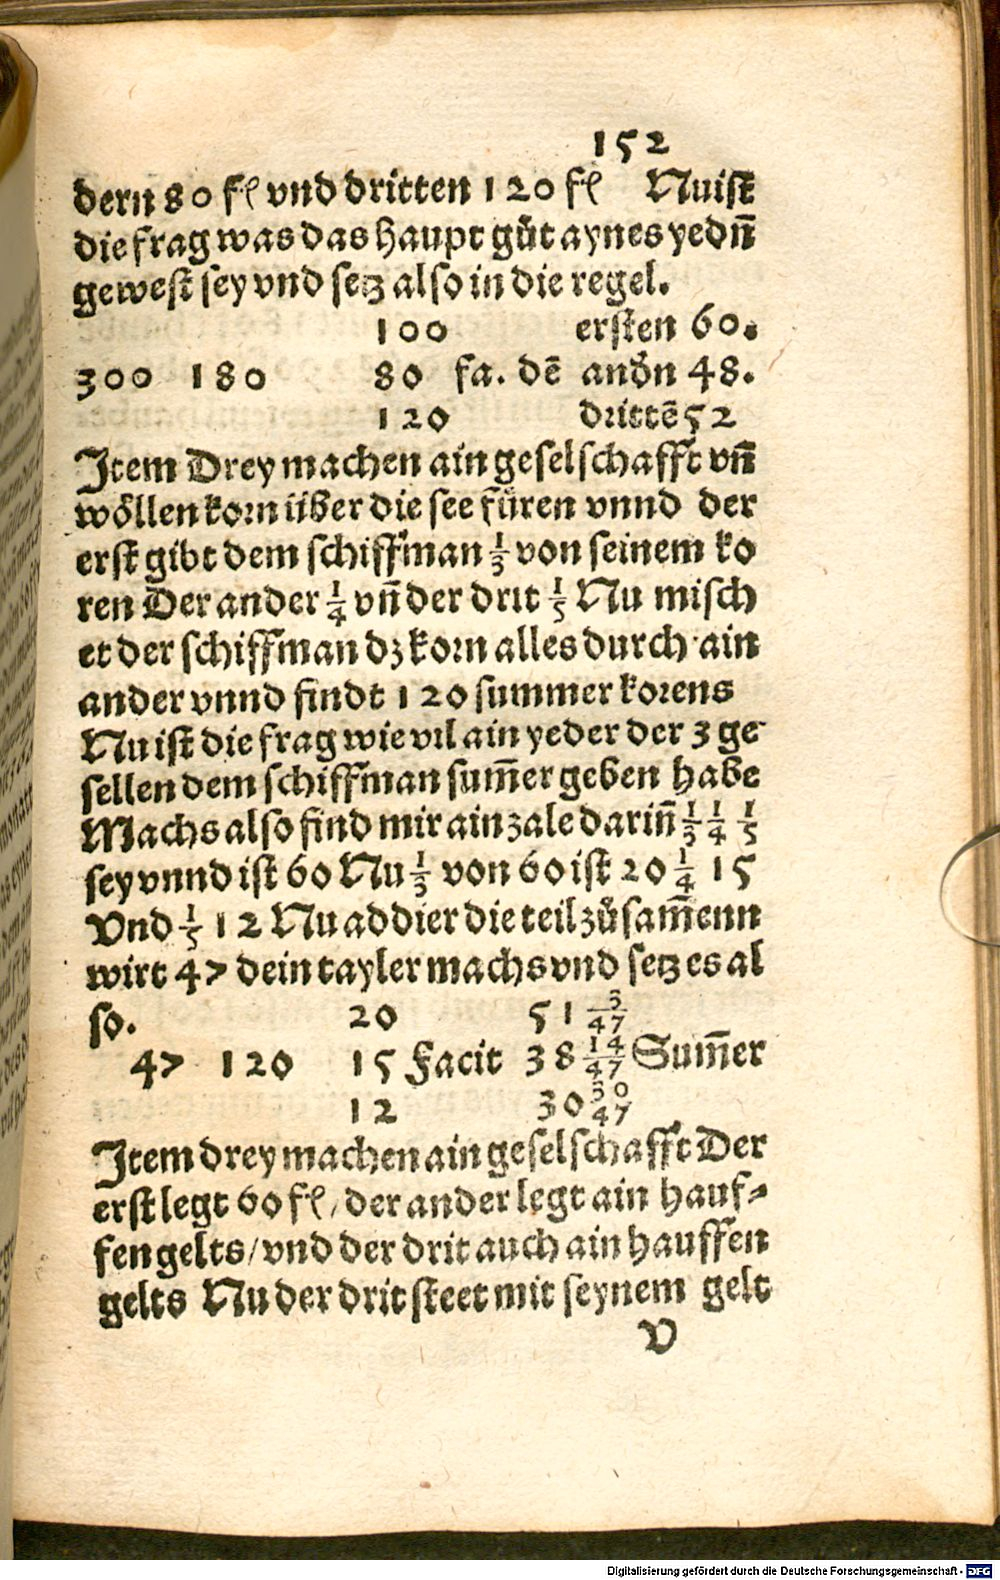 152
dern 80 fl vnd dritten 120 fl Nu ist
die frag was das haupt gůt aynes yedn̄
gewest sey vnd setz also in die regel.
100 ersten 60.
300 180 80 fa. dē andn̄ 48.
120 drittē 52
Item Drey machen ain geselschafft vn̄
wöllen korn über die see fůren vnnd der
erst gibt dem schiffman 1/3 von seinem ko
ren Der ander 1/4 vn̄ der drit 1/5 Nu misch
et der schiffman dz korn alles durch ain
ander vnnd findt 120 summer korens
Nu ist die frag wie vil ain yeder der 3 ge
sellen dem schiffman sum̄er geben habe
Machs also find mir ain zale darin̄ 1/3 1/4 1/5
sey vnnd ist 60 Nu 1/3 von 60 ist 20 1/4 15
Vnd 1/5 12 Nu addier die teil zůsam̄enn
wirt 47 dein tayler machs vnd setz es al
so. 20 51 3/47
47 120 15 Facit 38 14/47 Sum̄er
12 30 30/47
Item drey machen ain geselschafft Der
erst legt 60 fl / der ander legt ain hauf⸗
fen gelts / vnd der drit auch ain hauffen
gelts Nu der drit steet mit seynem gelt
V
Digitalisierung gefördert durch die Deutsche Forschungsgemeinschaft - DFG